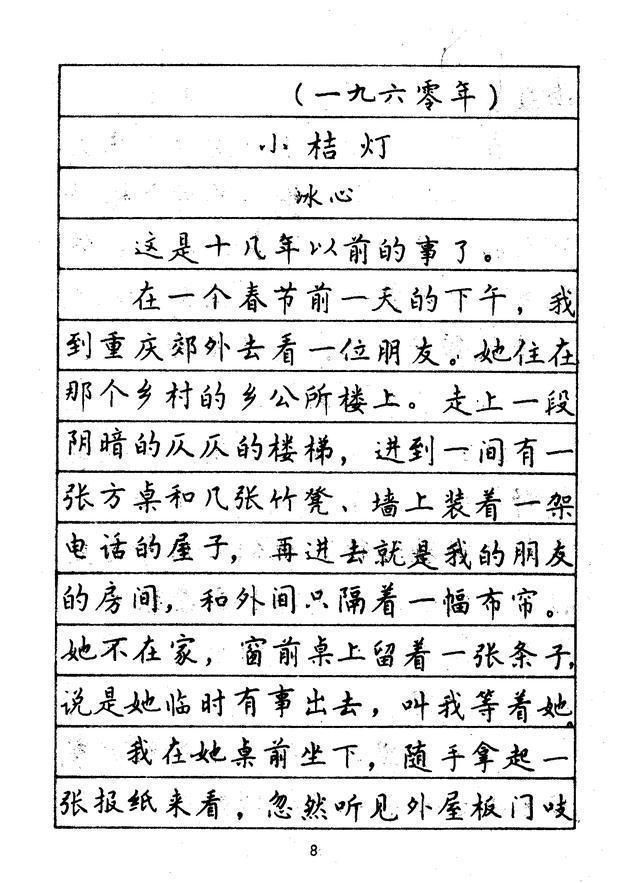 （一九六零年）
小桔灯
冰心
这是十几年以前的事了。
在一个春节前一天的下午，我
到重庆郊外去看一位朋友。她住在
那个乡村的乡公所楼上。走上一段
阴暗的仄仄的楼梯，进到一间有一
张方桌和几张竹凳、墙上装着一架
电话的屋子，再进去就是我的朋友
的房间，和外间只隔着一幅布帘。
她不在家，窗前桌上留着一张条子，
说是她临时有事出去，叫我等着她。
我在她桌前坐下，随手拿起一
张报纸来看，忽然听见外屋板门吱
8